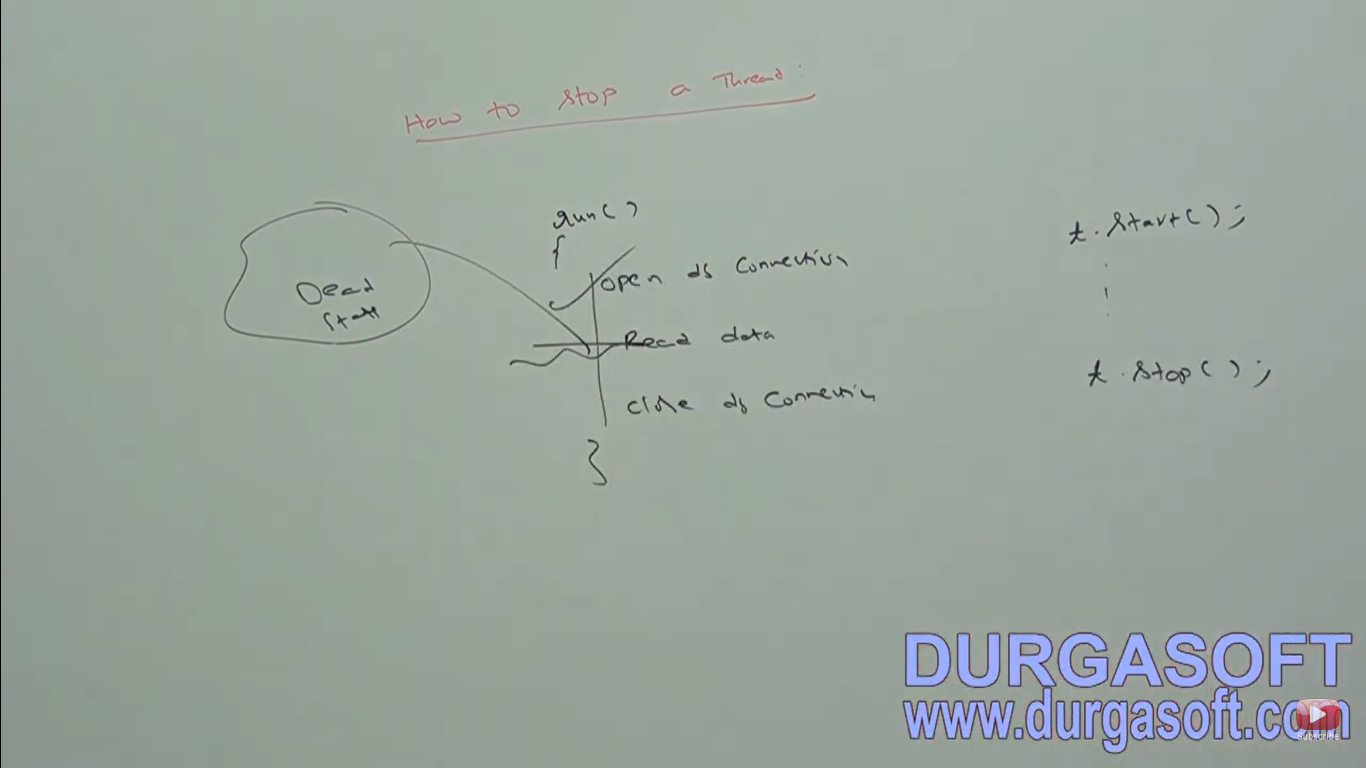 How to stop a Thread:
run()
{
open db Connection
Dead
state
Read data
close db Connection
}
t.start();
t.stop();
DURGASOFT
www.durgasoft.com
Subscribe